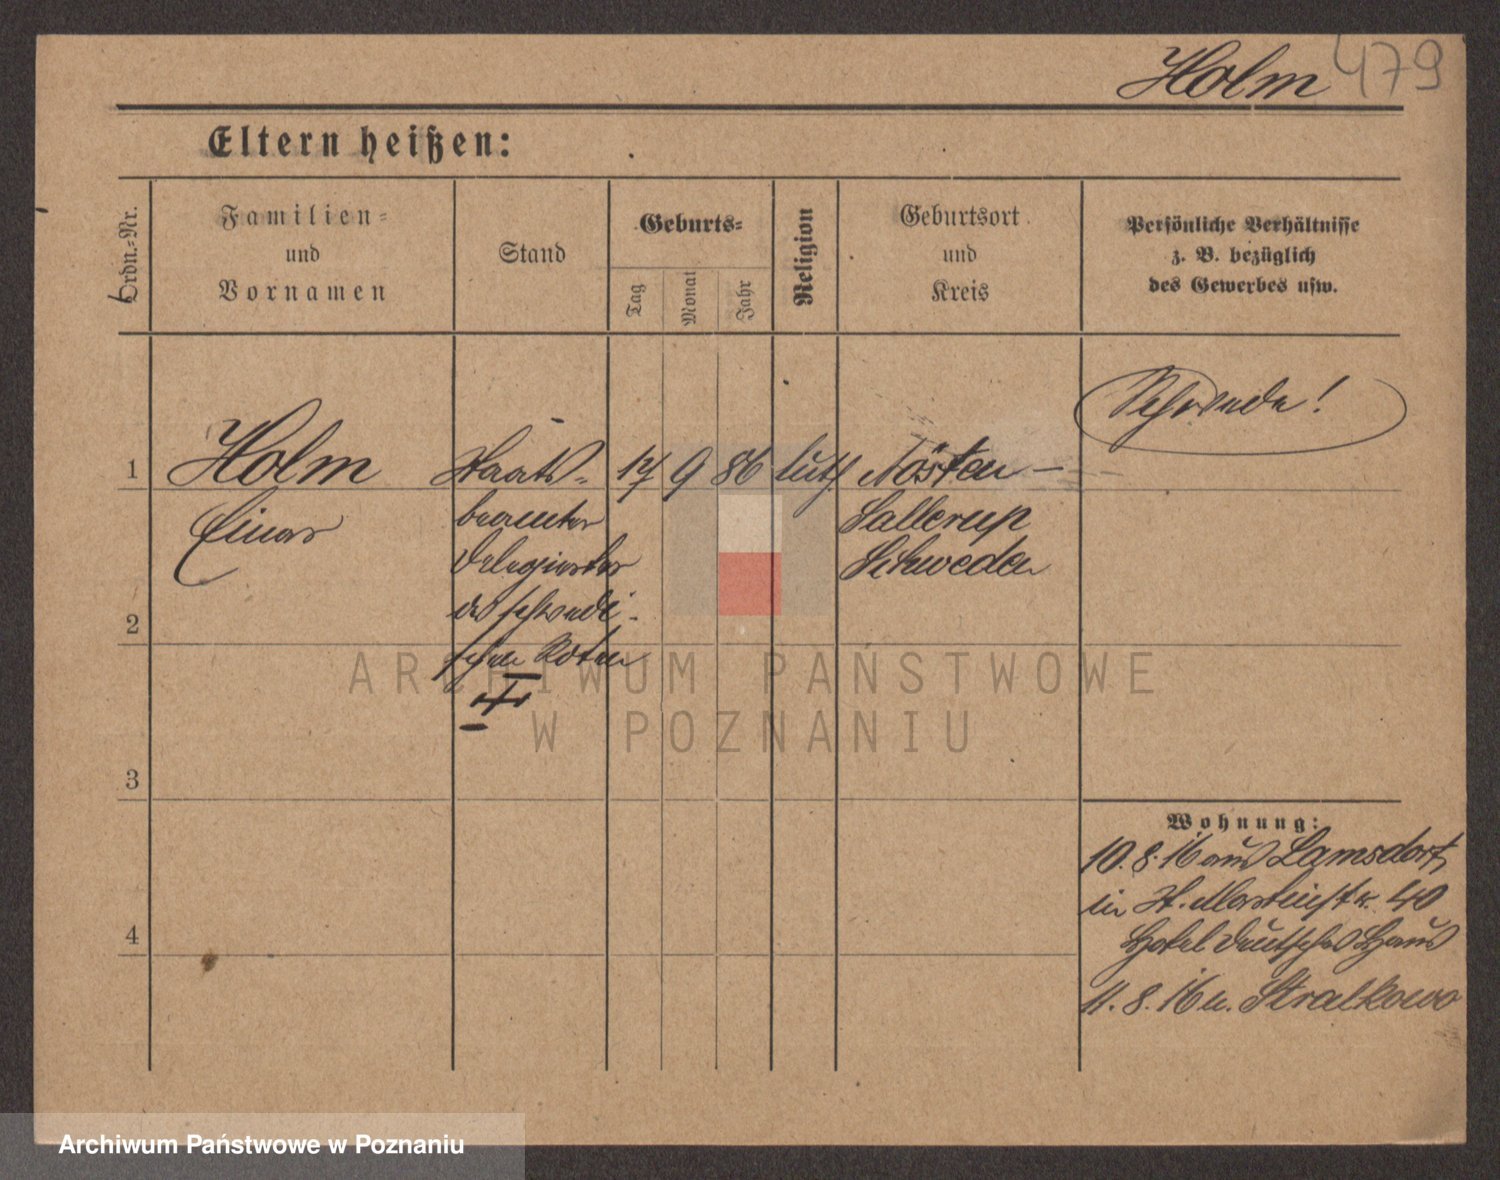 Holm 479
Eltern heißen:
Ordn.-Nr.
Familien-
und
Vornamen
Stand
Geburts-
Tag
Monat
Jahr
Religion
Geburtsort
und
Kreis
Persönliche Verhältnisse
z. B. bezüglich
des Gewerbes usw.
Schwede!
1 Holm Staats- 17 9 86 luth. Nösten-
Einar beamter Sallerup
Delegierter Schweden
2 des schwedi-
schen Roten
ARCHIWUM PAŃSTWOWE
W POZNANIU
3
Wohnung:
10.8.16 aus Lamsdorf,
in St. Martinstr. 40
4 Hotel Deutsches Haus
11.8.16 n. Stralkowo
Archiwum Państwowe w Poznaniu